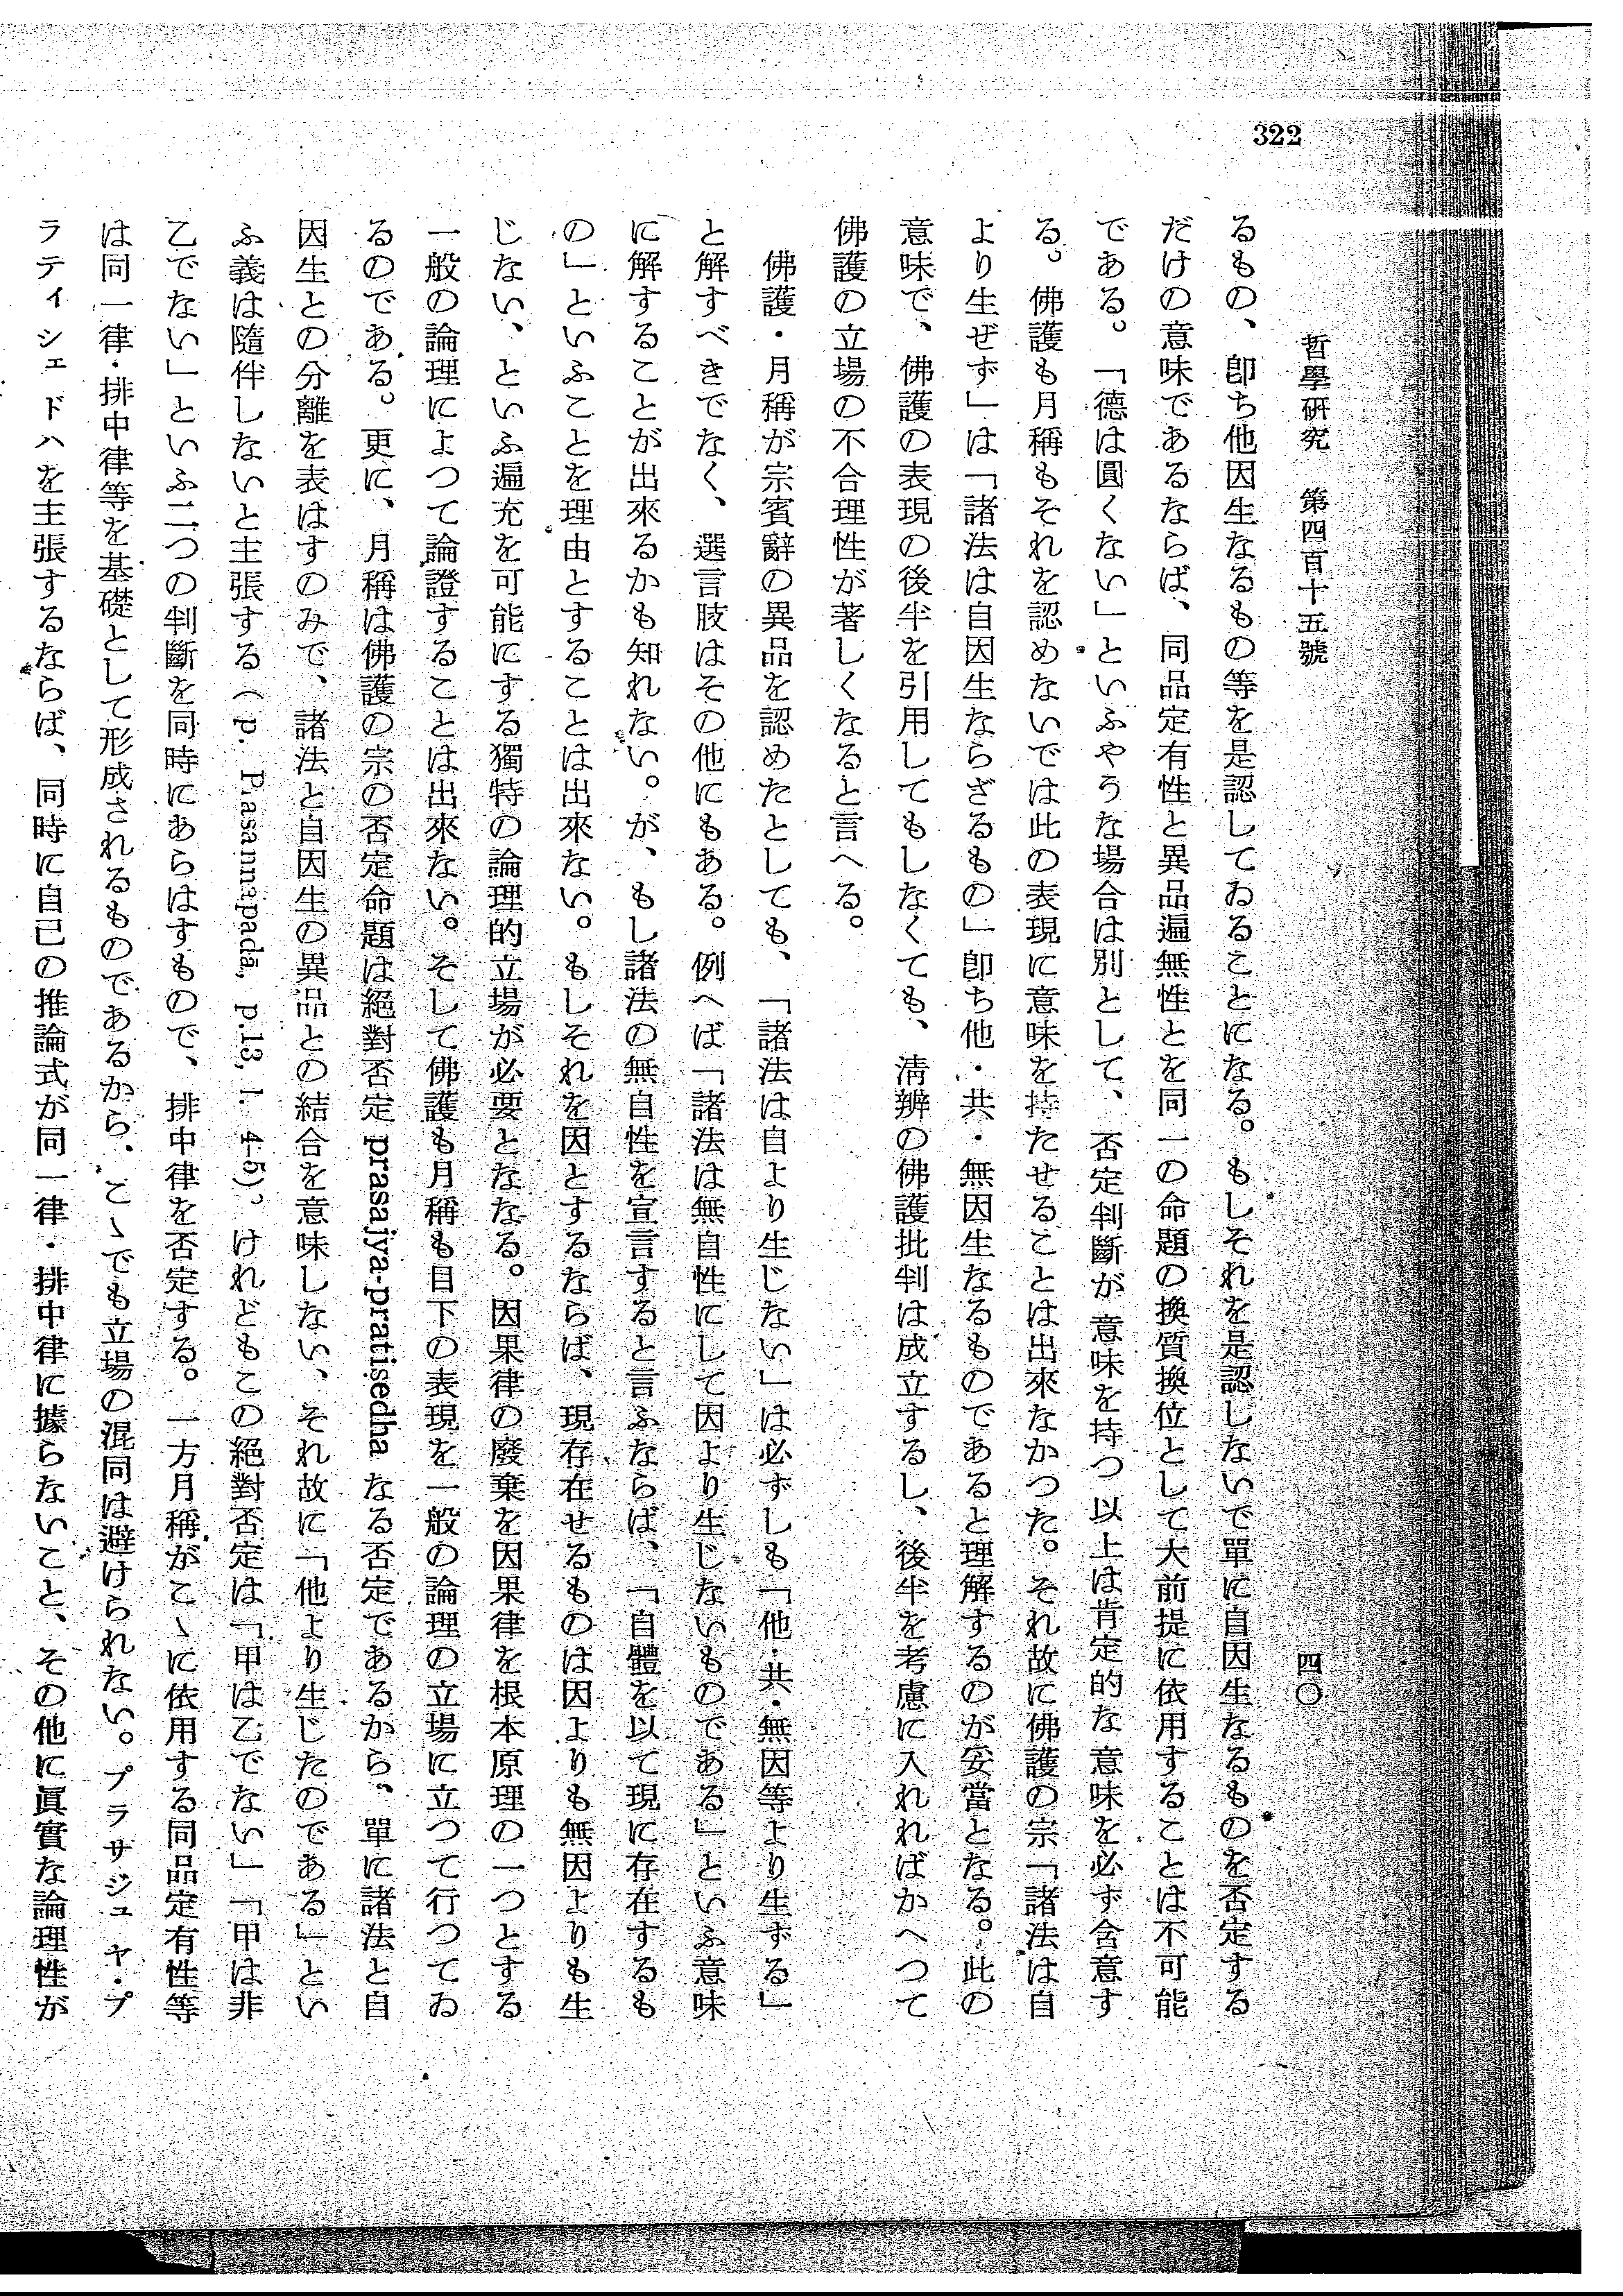 322
哲學硏究　第四百十五號
四〇
るもの、卽ち他因生なるもの等を是認してゐることになる。もしそれを是認しないで單に自因生なるものを否定する
だけの意味であるならば、同品定有性と異品遍無性とを同一の命題の換質換位として大前提に依用することは不可能
である。「德は圓くない」といふやうな場合は別として、否定判斷が意味を持つ以上は肯定的な意味を必ず含意す
る。佛護も月稱もそれを認めないでは此の表現に意味を持たせることは出來なかつた。それ故に佛護の宗「諸法は自
より生ぜず」は「諸法は自因生ならざるもの」卽ち他・共・無因生なるものであると理解するのが妥當となる。此の
意味で、佛護の表現の後半を引用してもしなくても、淸辨の佛護批判は成立するし、後半を考慮に入れればかへつて
佛護の立場の不合理性が著しくなると言へる。
佛護・月稱が宗賓辭の異品を認めたとしても、「諸法は自より生じない」は必ずしも「他・共・無因等より生ずる」
と解すべきでなく、選言肢はその他にもある。例へば「諸法は無自性にして因より生じないものである」といふ意味
に解することが出來るかも知れない。が、もし諸法の無自性を宣言すると言ふならば、「自體を以て現に存在するも
の」といふことを理由とすることは出來ない。もしそれを因とするならば、現存在せるものは因よりも無因よりも生
じない、といふ遍充を可能にする獨特の論理的立場が必要となる。因果律の廢棄を因果律を根本原理の一つとする
一般の論理によつて論證することは出來ない。そして佛護も月稱も目下の表現を一般の論理の立場に立つて行つてゐ
るのである。更に、月稱は佛護の宗の否定命題は絕對否定 prasajya-pratiṣedha なる否定であるから、單に諸法と自
因生との分離を表はすのみで、諸法と自因生の異品との結合を意味しない、それ故に「他より生じたのである」とい
ふ義は隨伴しないと主張する（p. Prasannapadā, p.13, l. 4-5)。けれどもこの絕對否定は「甲は乙でない」「甲は非
乙でない」といふ二つの判斷を同時にあらはすもので、排中律を否定する。一方月稱がこゝに依用する同品定有性等
は同一律・排中律等を基礎として形成されるものであるから、こゝでも立場の混同は避けられない。プラサジュヤ・プ
ラティシェドハを主張するならば、同時に自己の推論式が同一律・排中律に據らないこと、その他に眞實な論理性が